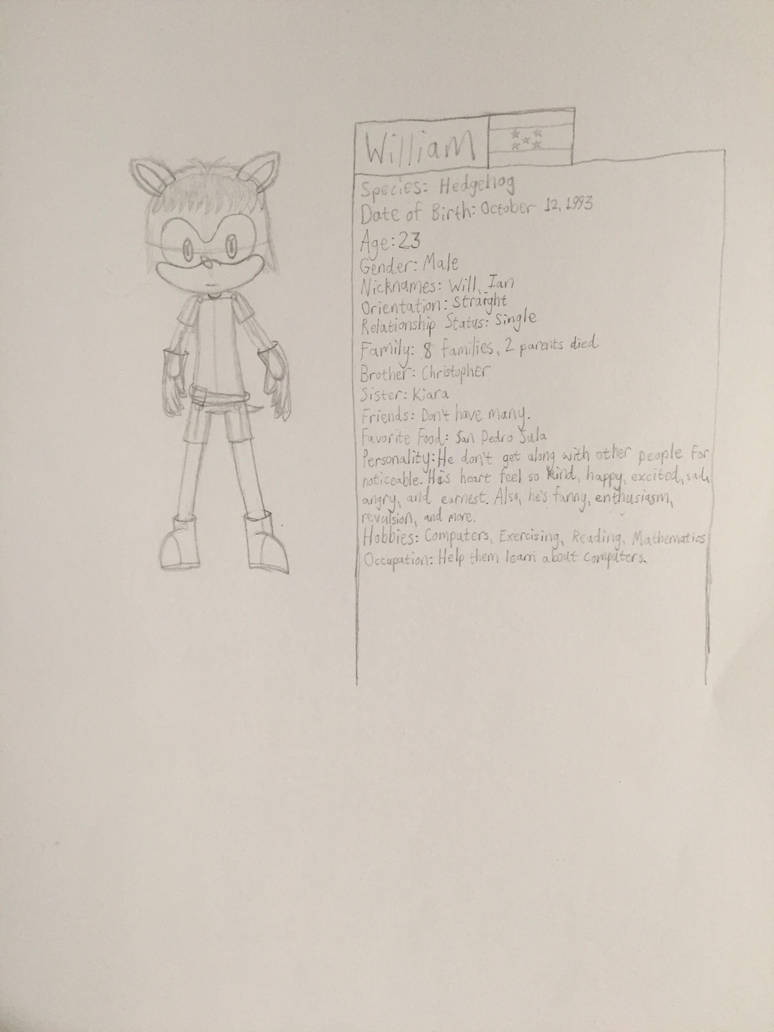 William
Species: Hedgehog
Date of Birth: October 12, 1993
Age: 23
Gender: Male
Nicknames: Will, Ian
Orientation: Straight
Relationship Status: Single
Family: 8 families, 2 parents died
Brother: Christopher
Sister: Kiara
Friends: Don't have many.
Favorite Food: San Pedro Sula
Personality: He don't get along with other people for
noticeable. His heart feel so kind, happy, excited, sad,
angry, and earnest. Also, he's funny, enthusiasm,
revulsion, and more.
Hobbies: Computers, Exercising, Reading, Mathematics
Occupation: Help them learn about computers.